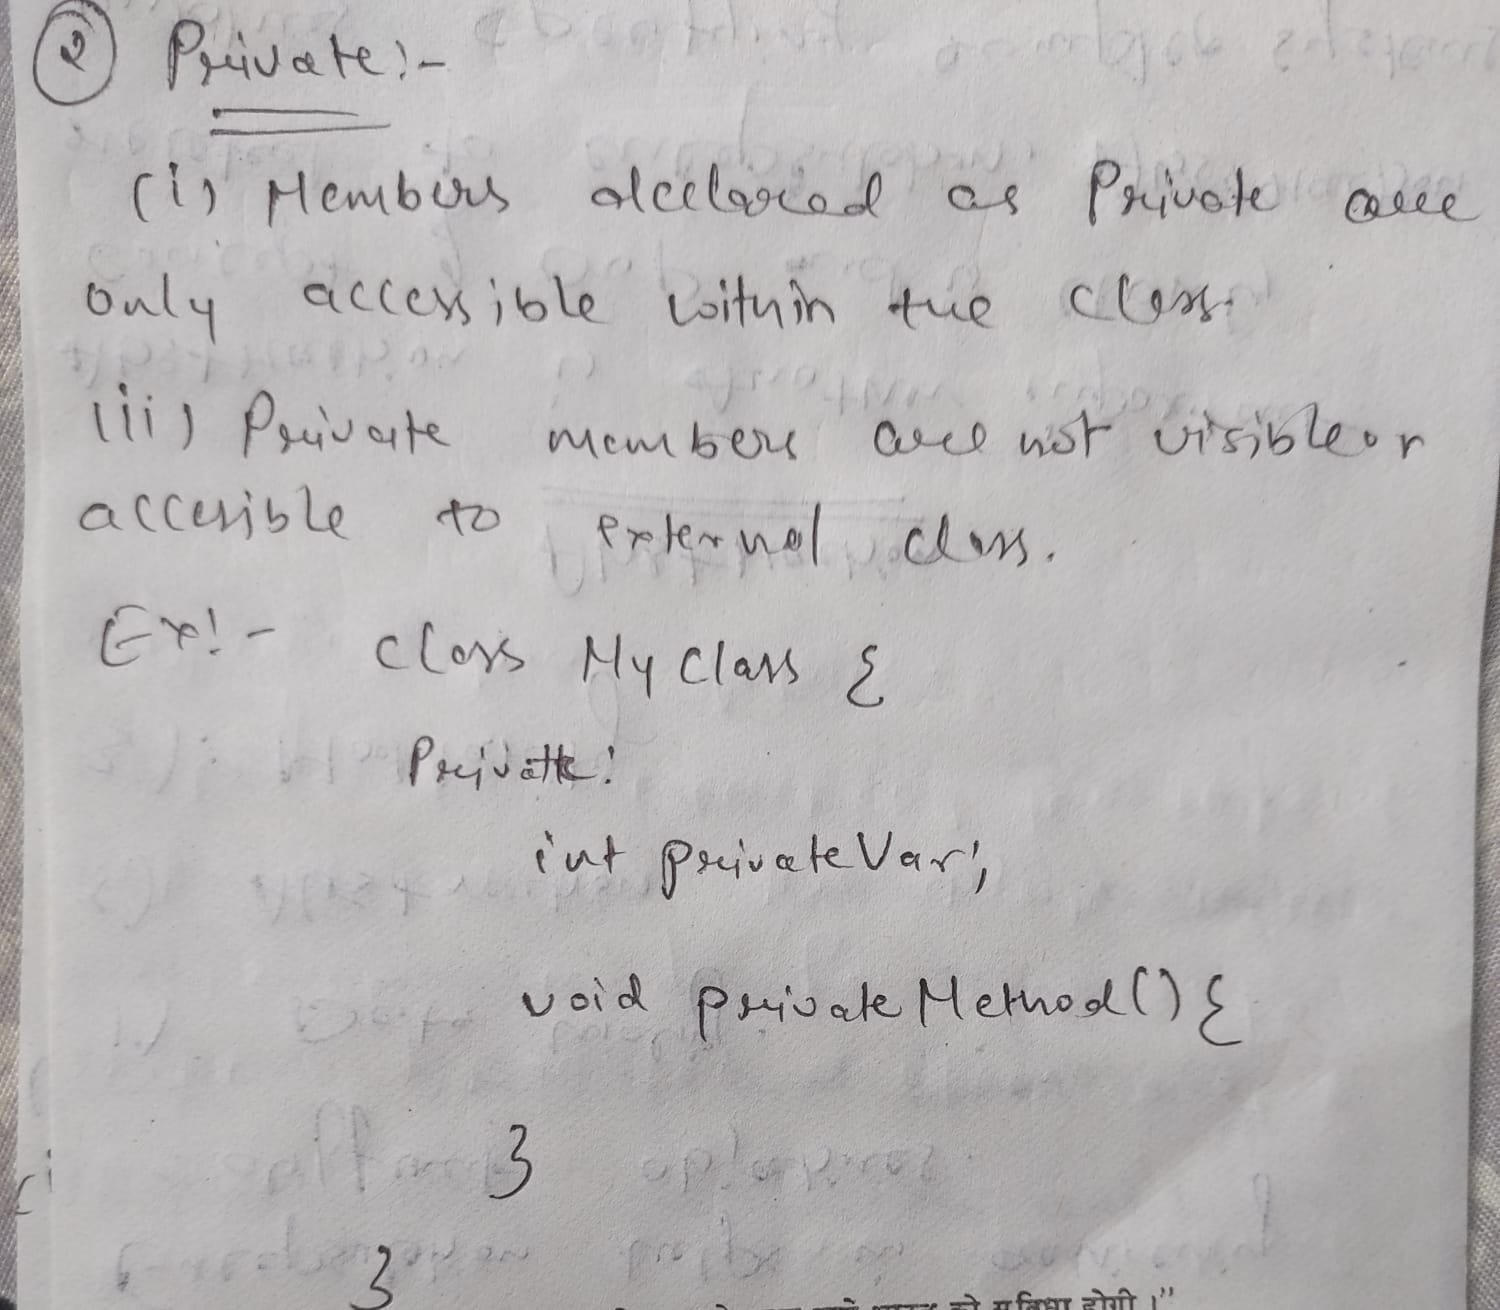 ② Private:-
(i) Members declared as Private are
only accessible within the class.
(ii) Private members are not visible or
accesible to external class.
Ex:- class MyClass {
Private:
int privateVar;
void privateMethod() {
}
}
को सुविधा होगी ।"